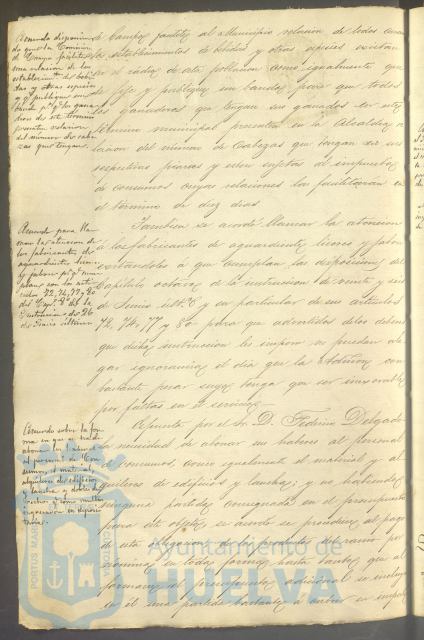 Acuerdo disponien
do que la Comision
de Campo facilite
una relacion de los
establecimtos de bebi
das y otras especies
y se publique un
bando pa qe los gana
deros de este termino
presenten relacion
del número de cabe
zas que tengan.
de Campo facilite al Municipio relacion de todos cuan
establecimientos de bebidas y otras especies existan
en el rádio de esta poblacion como igualmente que
se fije y publique un bando, para que todos
los ganaderos que tengan sus ganados en este
término municipal presenten en la Alcaldia re
lacion del número de Cabezas que tengan en sus
respectivas piaras y esten sujetas al impuesto
de consumos cuyas relaciones las facilitarán en
el término de diez dias.
Acuerdo para lla
mar la atencion de
los fabricantes de
aguardientes, licores
y jabon pa qe cum
plan con los arti
culos 72, 74, 77 y 80
del Capo 8o de la
Instruccion de 26
de Junio último
Tambien se acordó llamar la atencion
á los fabricantes de aguardiente, licores y jabon
á que cumplan las disposiciones del
Capítulo octavo de la instruccion de veinte y seis
de Junio ultmo y en particular de sus artículos
72, 74, 77 y 80 para que advertidos de los deberes
que dicha instruccion les impone no puedan ale
gar ignorancia el dia que la Admon con
bastante pesar suyo tenga que ser inexorable
por faltas en el servicio.
Acuerdo sobre la for
ma en que se ha de
abonar los haberes
al personal de con
sumos, el material,
alquileres de edificios
y lanchas
Espuesto por el Sr. D. Federico Delgado
la necesidad de abonar sus haberes al personal
de consumos, como igualmente el material y al
quileres de edificios y lanchas, y no habiendo
ninguna partida consignada en el presupuesto
para este objeto, se acordó se procediera al pago
de esta obligacion de los productos del ramo por
nómina en toda forma, hasta tanto que al
formarse el presupuesto adicional se incluya
en él una partida bastante á cubrir su impor
PORTUS MARIS
Ayuntamiento de
HUELVA